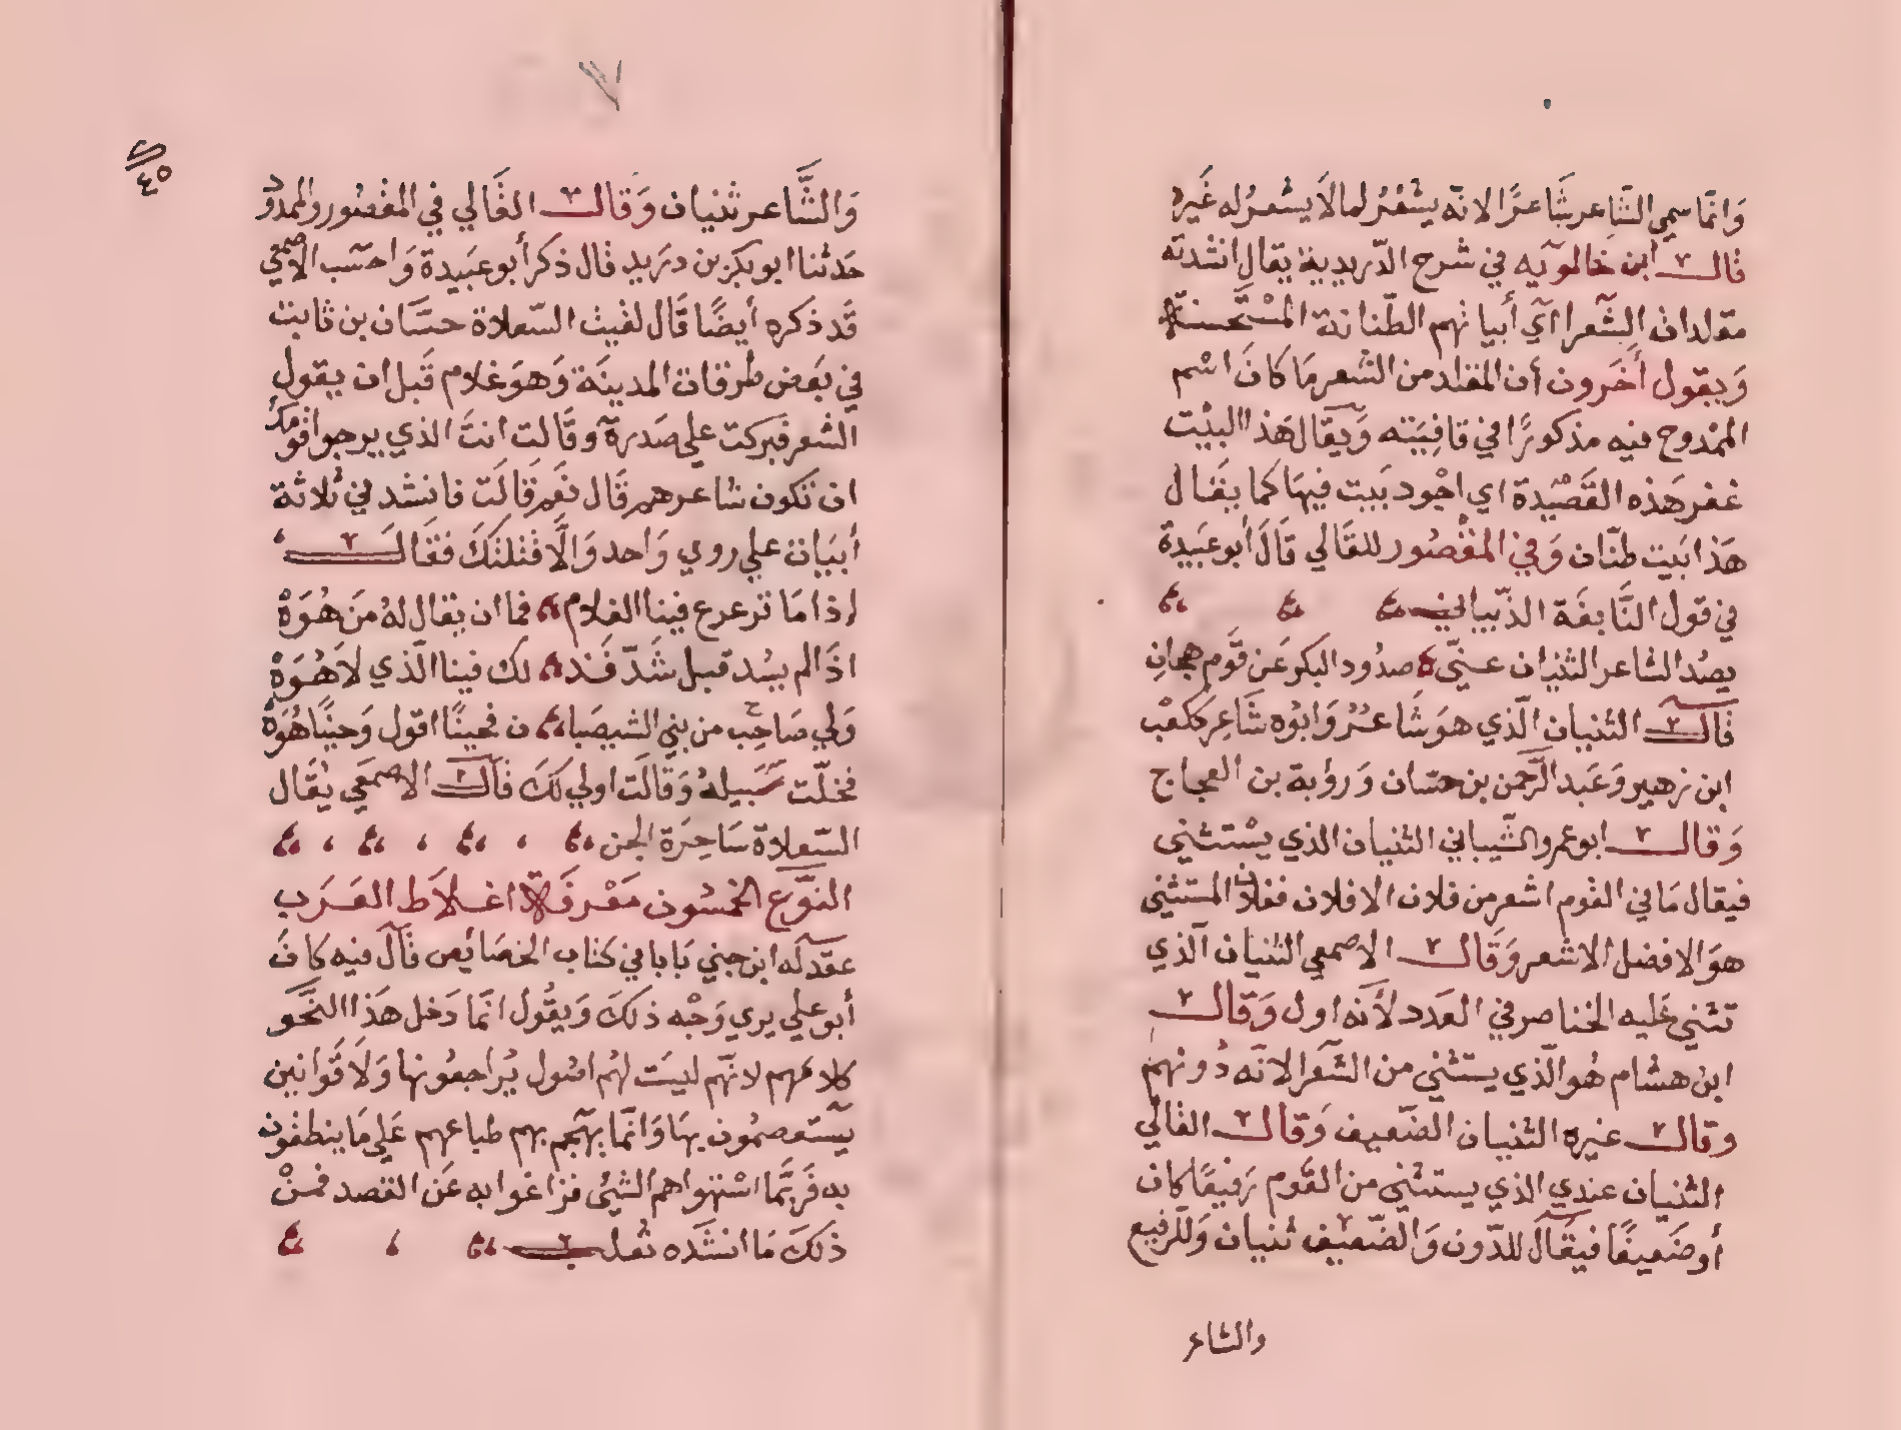 وَانمّا سمي الشّاعر شَاعرًا لانّه يشعُرُ لما لاَ يشعرُ له غَيره
قال ابن خالويه في شرح الدّريدية يقال انشدته
مقلدات الشّعرا اي أبياتهم الطّنانة المسْتحسنة
وَيقول أخَرون أن المقلد من الشعر مَا كانَ اسْم
الممْدوح فيه مذكورًا في قافِيَته وَيقال هَذا البيْت
غفر هَذه القَصْيدة اي اجْود بَيت فيهَا كمَا يقَال
هَذا بَيت طنّان وَفي المقْصُور للقَالي قَالَ أبو عبَيدة
في قول النَّابغَة الذّبياني
يصُد الشاعر الثنيان عنيّ صدُود البكر عَن قَوم هجانِ
قَال الثنيان الّذي هوَ شَاعرُ وَابوُه شَاعِر ككعْب
ابن زهير وَعَبد الرّحمن بن حسّان وَرؤبة بن العجاج
وَقال ابو عمرو الشّيباني الثنيان الذي يسْتثنى
فيقال مَا في القوم اشعر من فلان الا فلان ففلان المستثنى
هوَ الافضل الاشعر وَقَال الاصمعي الثنيان الّذي
تثنيَ عَليه الخناصر في العَدد لأنه اول وَقال
ابن هشام هُو الّذي يستثنيَ من الشّعرا لانّه دُونهم
وقال غيره الثنيان الضّعيف وَقال القالي
الثنيان عندي الذي يستثنى من القَوم رَفيعًا كان
أو ضَعيفًا فيقَال للدّون وَالضّعيف ثنيان وَللرفيع
والشاعر
٤٥
وَالشَّاعر ثنيان وَقال القَالي في المقْصُور والممدود
حَدثنا ابو بكر بن دريد قال ذكر أبو عبَيدة وَاحسَب الاصمعي
قَد ذكره أيضًا قَال لقيت السّعلاة حسَّان بن ثابت
في بَعض طرقات المدينَة وَهوَ غلام قَبل ان يقول
الشعر فبركت علي صَدره وقَالت انتَ الذي يرجوا قومك
ان تَكون شاعرهم قَال نعَم قَالَت فانشدني ثلاثة
أبيَات علي روي وَاحد وَالَّا قتلتكَ فقَالَ
اذا مَا ترعرع فينا الغلام فما ان يقال لهُ مَن هُوَهْ
اذَا لم يسُد قبل شَدّ قَند لك فينا الّذي لاَ هُوَهْ
وَلي صَاحِب من بني الشيصَبا ن فحينًا اقول وَحينًا هُوَهْ
فخلّت سَبيلهُ وَقالَت اولي لكَ قَال الاصمَعي يُقَال
السّعلاة سَاحِرَة الجن
النوّع الخمسُون مَعْرفَة اغلاَط العَرَب
عقدّ له ابن جني بَابا في كتاب الخصَائص قَال فيه كانَ
أبو علي يري وَجْه ذلكَ وَيقُول انمّا دَخل هَذا النَّحو
كلامَهم لانّهم ليسَت لهُم اصُول يُراجعُونها وَلاَ قَوانين
يسّتعصمُون بهَا وَانمّا يهجم بهم طباعهم عَلي مَا ينطقون
به فَربمَّا اسْتهواهم الشيُ فزاغوا به عَن القصد فمنْ
ذَلكَ مَا انشَده ثعلب